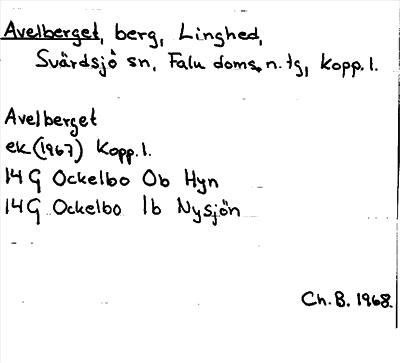 Avelberget, berg, Linghed,
Svärdsjö sn, Falu doms.n.tg, Kopp.l.
Avelberget
ek (1967) Kopp.l.
14G Ockelbo 0b Hyn
14G Ockelbo 1b Nysjön
Ch.B. 1968.